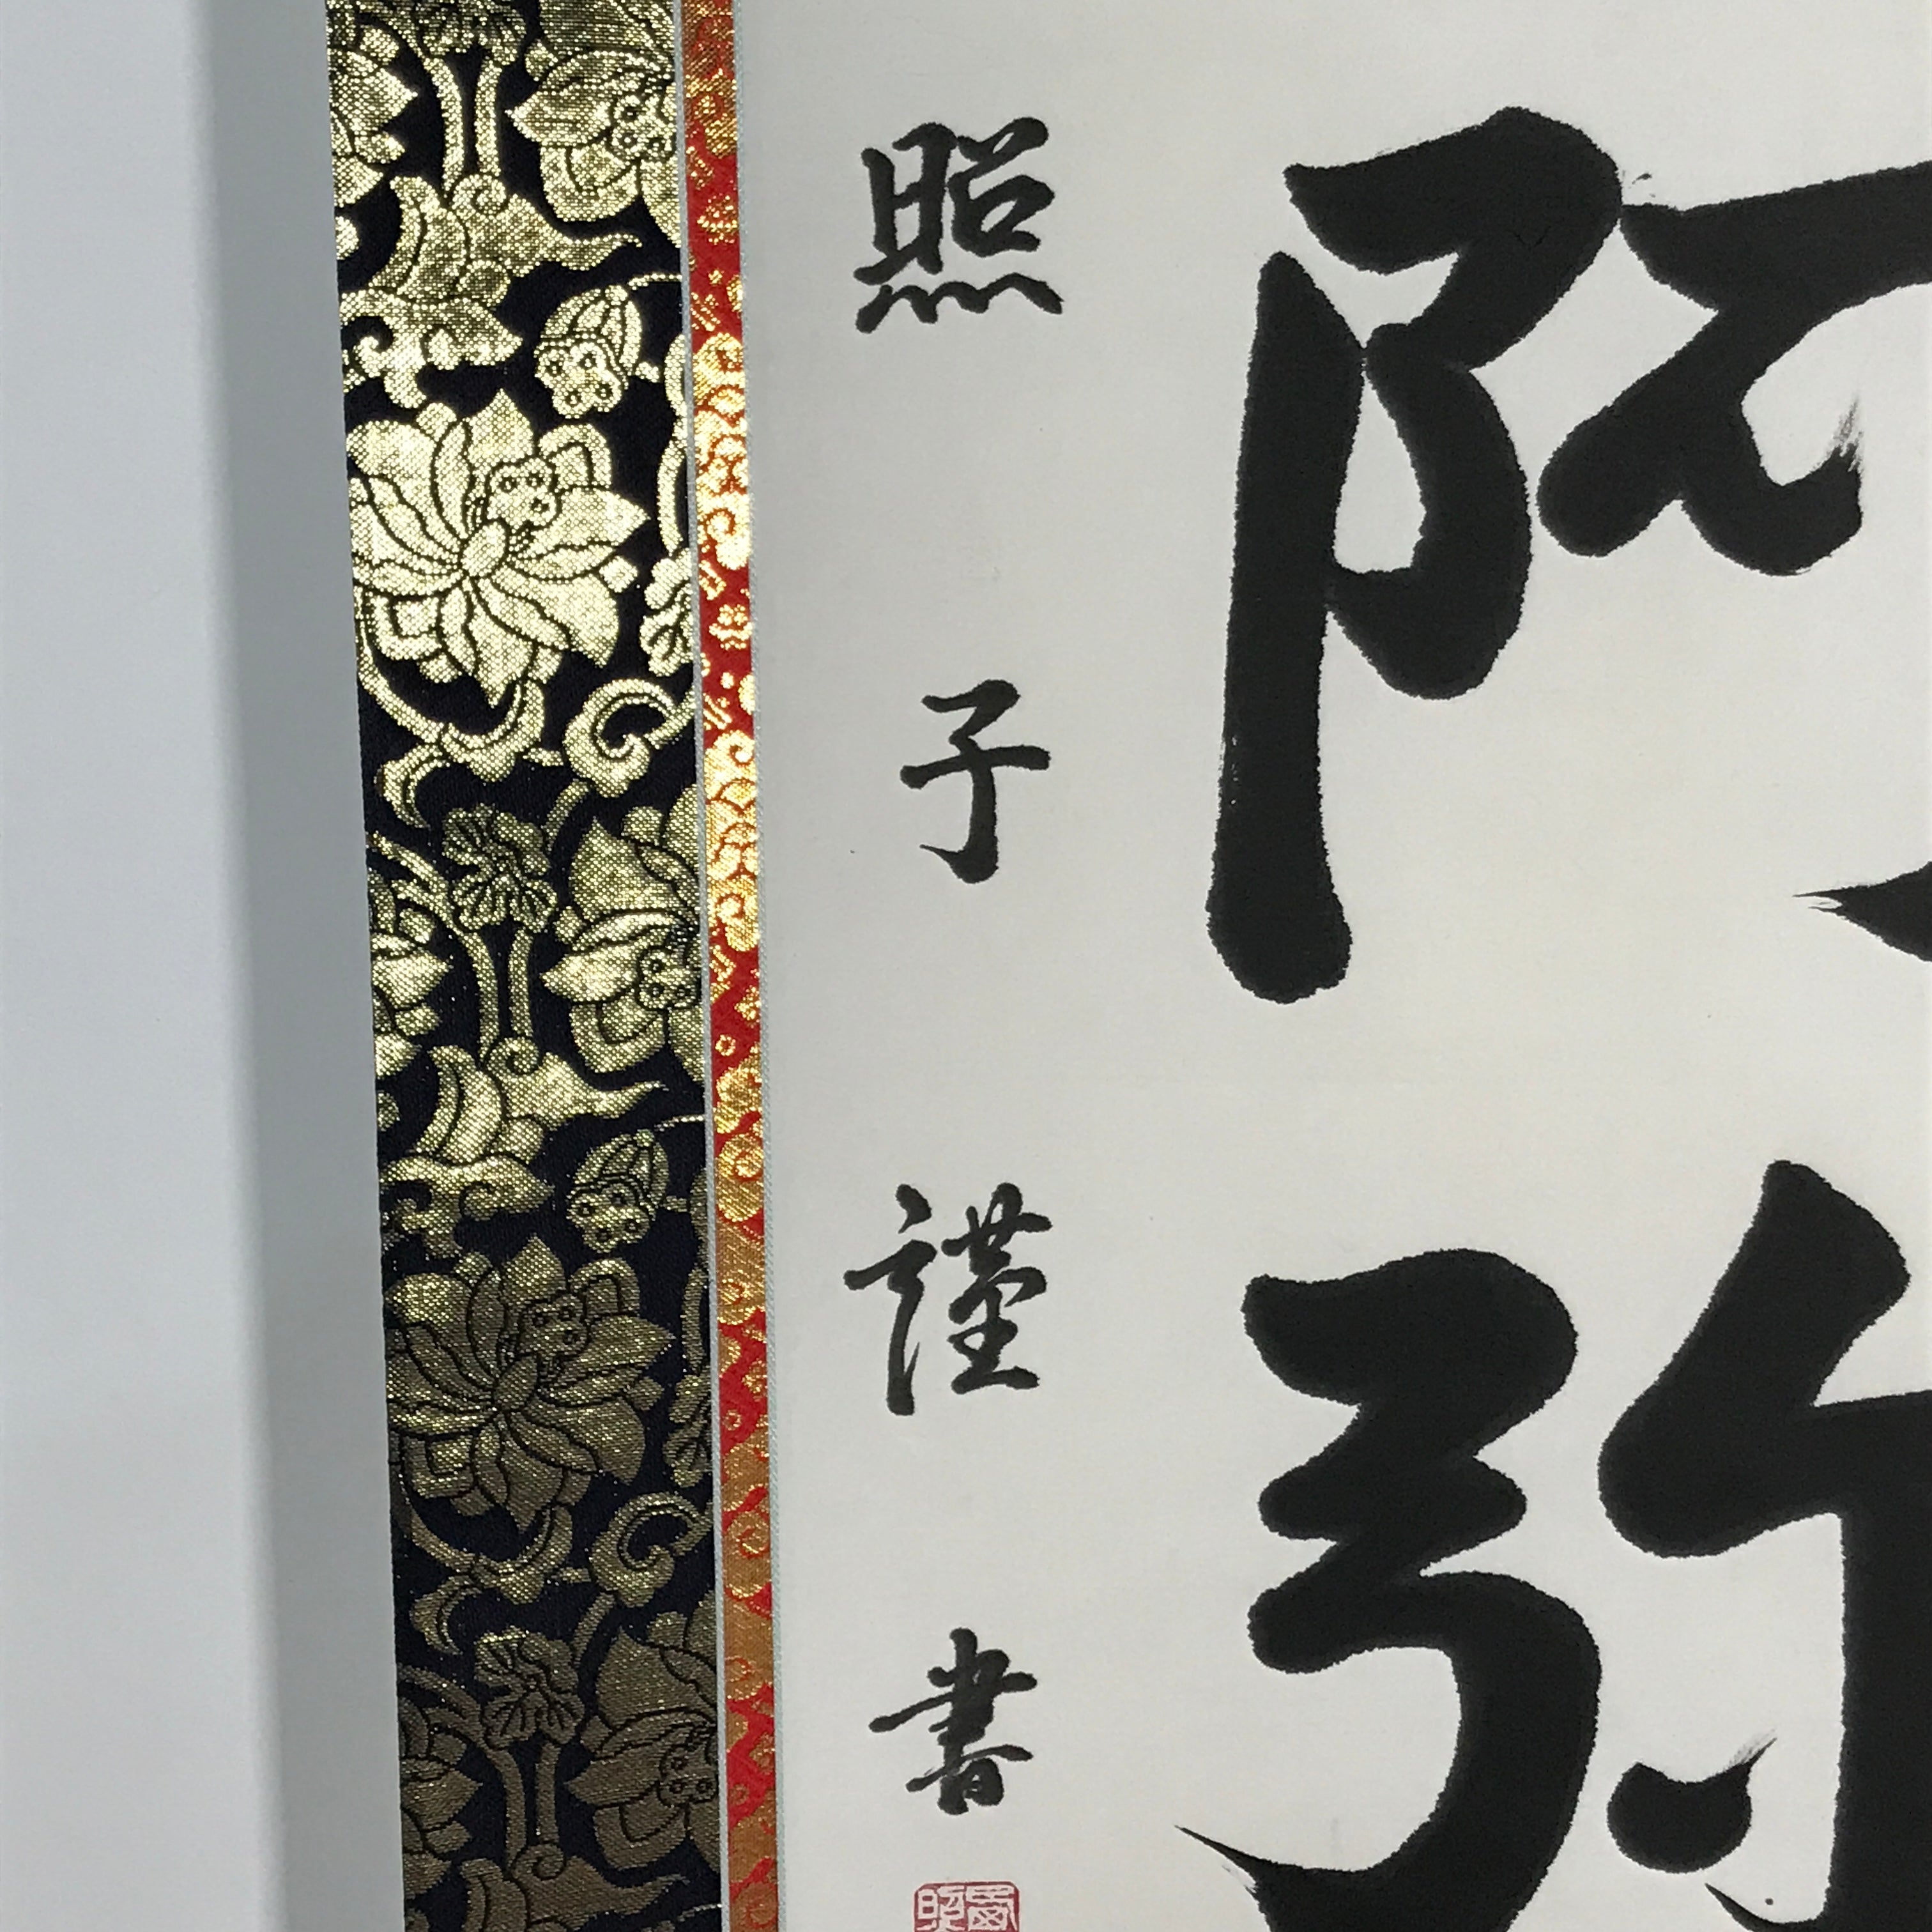 阿弥
照子謹書